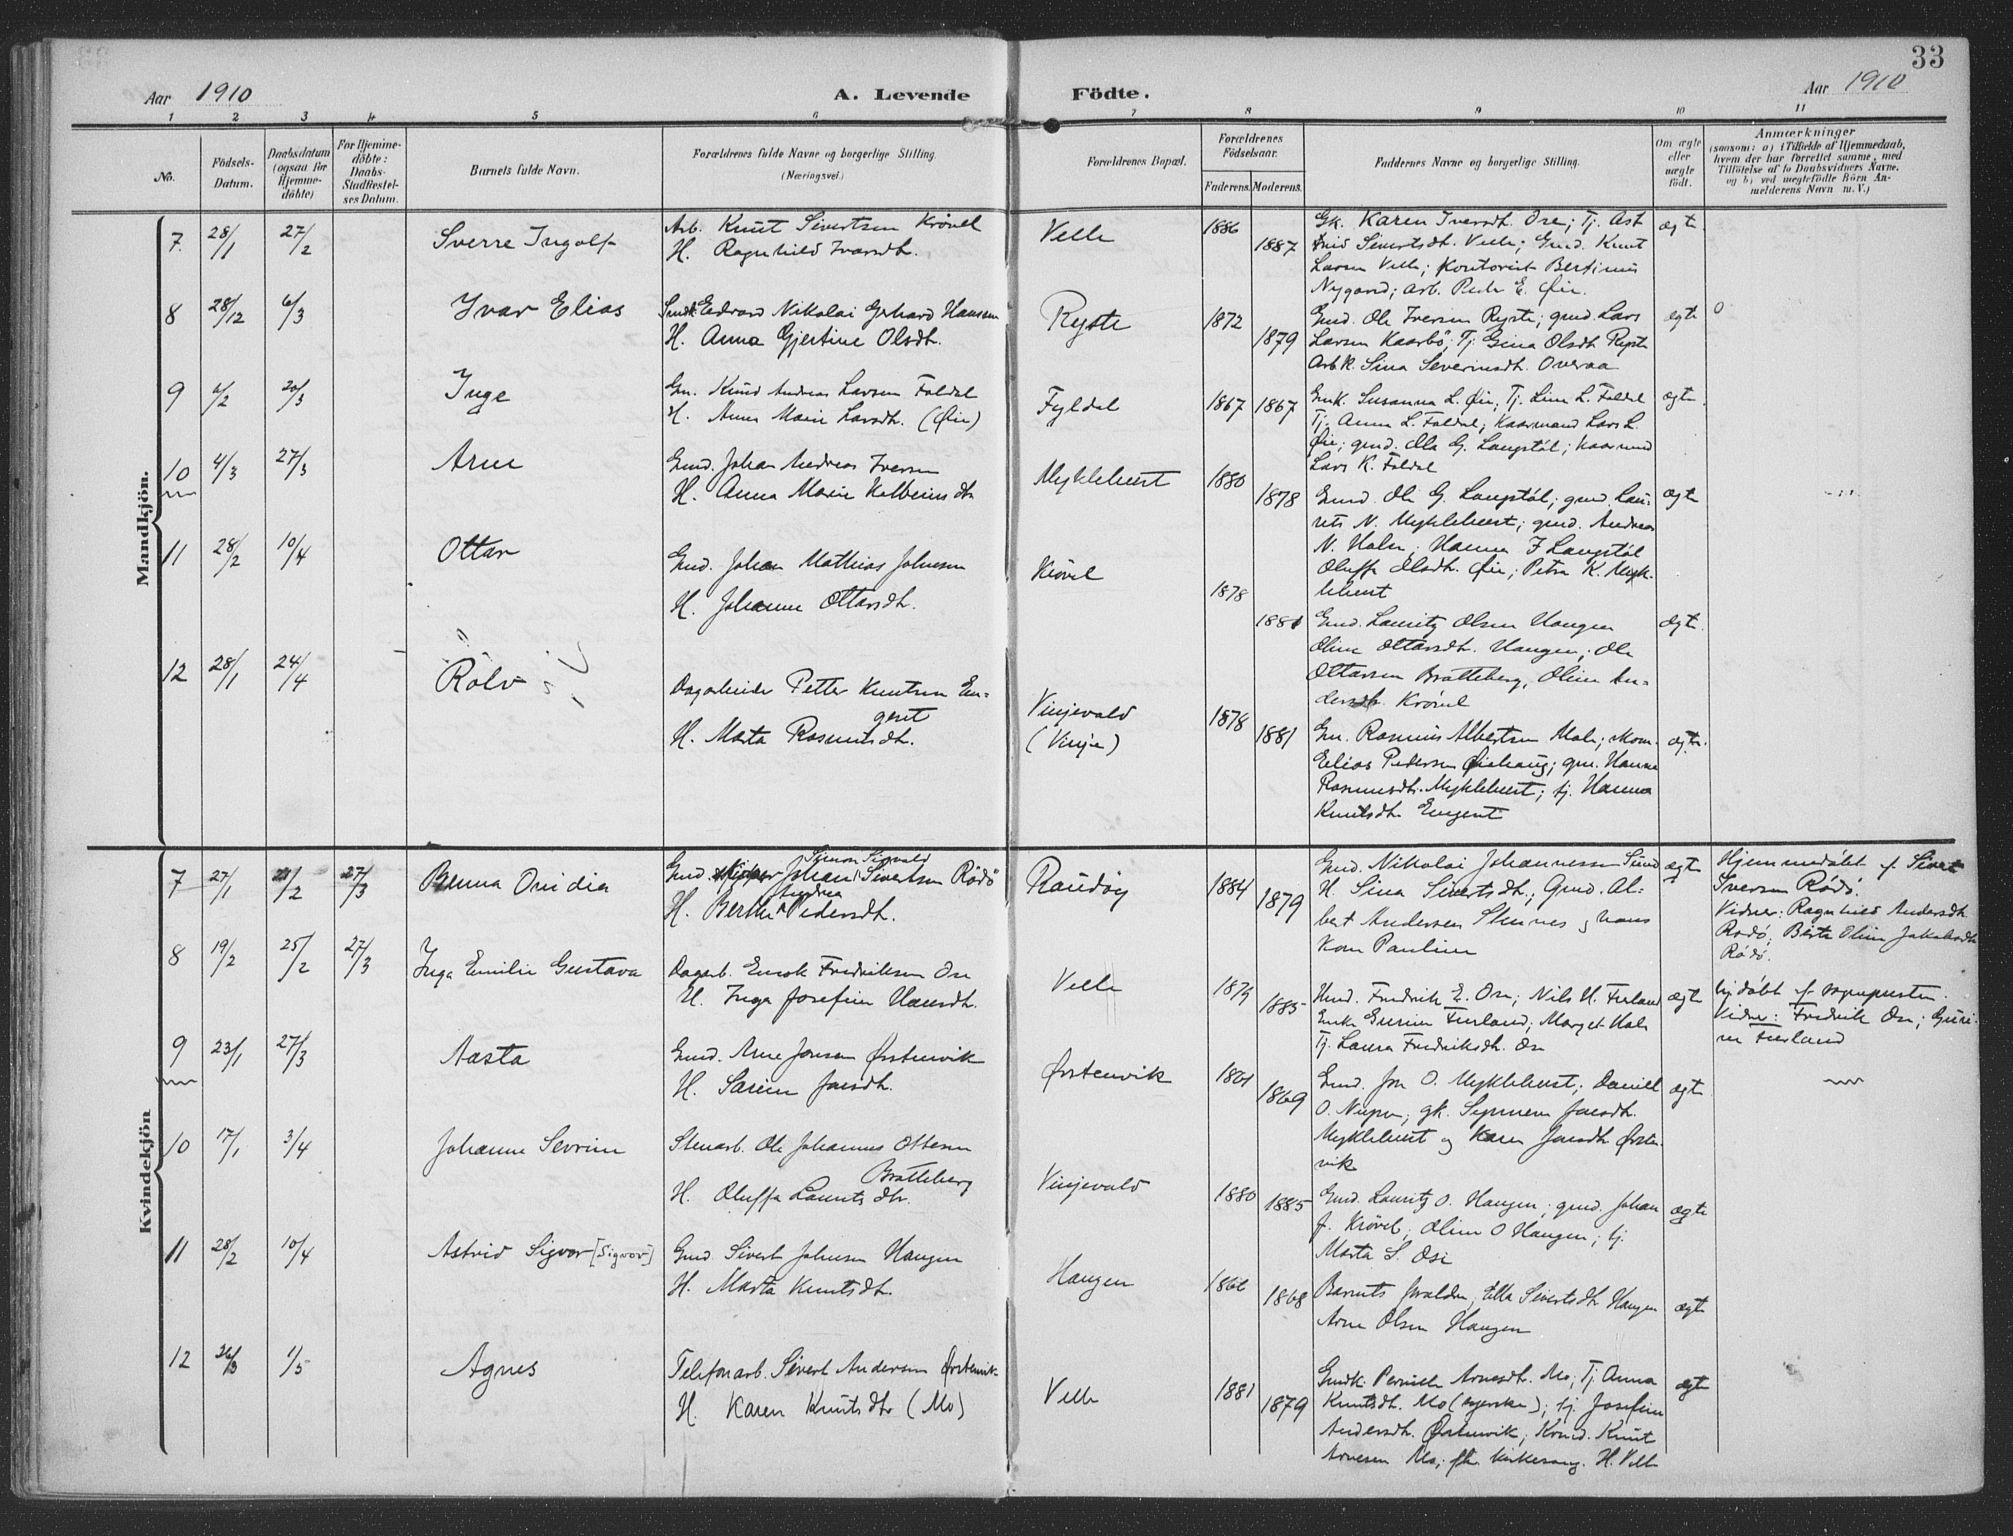 33
Aar 1910
A. Levende Födte.
Aar 1910
1 2 3 4 5 6 7 8 9 10 11
No.
Födsels-Datum.
Daabsdatum (ogsaa for Hjemme-döbte)
For Hjemme-döbte: Daabs-Stadfæstel-ses Datum.
Barnets fulde Navn.
Forældrenes fulde Navne og borgerlige Stilling. (Næringsvei.)
Forældrenes Bopæl.
Forældrenes Födselsaar.
Faderens. Moderens.
Faddernes Navne og borgerlige Stilling.
Om ægte eller uægte født.
Anmærkninger
(saasom: a) i Tilfælde af Hjemmedaab, hvem der har forrettet samme, med Tilföielse af to Daabsvidners Navne. og b) ved uægtefödte Börn An-melderens Navn m. V.)
Mandkjön.
7 28/1 27/2 Sverre Ingolf
Arb. Knut Sivertsen Krövel
H. Ragnhild Ivarsdt.
Velle 1886 1887
Gk. Karen Iversdt. Ose; Tj. Ast
rid Sivertsdt. Velle; Gmd. Knut
Larsen Velle; Kontorist Bertinus
Nygaard; Arb. Peder E. Øie.
ægte
8 28/12 6/3 Ivar Elias
Edvard Nikolai Gerhard Hansen
H. Anna Gjertine Olsdt.
Ryste 1872 1879
Gmd. Ole Iversen Ryste; gmd. Lars
Larsen Kaarbö; Tj. Gina Olsdt. Ryste
Arbk. Sina Severinsdt. Overaa
ægte 0
9 20/3 Inge
Gm. Knud Andreas Larsen Foldal
H. Anne Marie Larsdt. (Øie)
Fyldal 1867 1867
Gmk. Susanna L. Øie; Tj. Line L. Foldal
Tj. Anna L. Foldal; Kaarmand Lars L.
Øie; gmd. Ola G. Langstöl; Kaarmand
Lars K. Foldal
ægte.
10 4/3 27/3 Arne
Gmd. Johan Andreas Iversen
H. Anna Marie Kolbeinsdtr
Myklebust 1880 1878
Gmd. Ole G. Langstöl; gmd. Lau-
rits N. Myklebust; gmd. Andreas
N. Holen; Hanna J Langstöl
Oluffa Olsdt. Øie; Petra K. Myk-
lebust
ægte
11 28/2 10/4 Ottar
Gmd. Johan Mathias Johnsen
H. Johanne Ottarsdt.
Krövel 1878 1881
Gmd. Lauritz Olsen Haugen
Oline Ottarsdt. Haugen; Ole
Ottarsen Bratteberg, Oline An-
dersdt. Krövel
ægte.
12 28/1 24/4 Rolv
Dagarbeider Petter Knutsen En-
geset
H. Marta Rasmusdt.
Vinjevold
(Vinje)
1878 1881
Gm. Rasmus Albertsen Mole;
Elias Pedersen Øiehaug; gm. Hanna
Rasmusdt. Myklebust; tj. Hanna
Knutsdt. Engeset
ægte.
Kvindekjön
7 27/1 27/3 Benna Ovidia
Simon Sigvald
Gmd. Johan Sivertsen Rödö
Andrea
H. Berthe Pedersdt.
Raudöy 1884 1879
Gmd. Nikolai Johannessen Sund
H. Sina Sivertsdt.; Gmd. Al-
bert Andersen Stennes og hans
Kone Pauline
ægte
Hjemmedöbt f. Sivert
Iversen Rödö.
Vidner: Ragnhild Andersdt.
Rödö; Berte Oline Jakobsdt
Rödö.
8 19/2 25/2 27/3 Inga Emilie Gustava
Dagarb. Enok Fredriksen Ose
H. Inga Josefine Hansdt.
Velle 1879 1885
Gmd. Fredrik E. Ose; Nils H. Furland
Enke Gurine Furland; Marget Hole
Tj. Laura Fredriksdt. Ose
ægte
hjdöbt f sognepresten.
Vidner: Fredrik Ose; Guri-
ne Furland
9 23/1 27/3 Aasta
Gmd. Arne Jonsen Ørstenvik
H. Sarine Jonsdt.
Ørstenvik 1861 1869
Gmd. Jon O. Myklebust; Daniel
O. Nupen; gk. Synneve Jonsdt.
Myklebust og Karen Jonsdt. Ørsten-
vik
ægte
10 17/1 3/4 Johanne Sevrine
Stenarb. Ole Johannes Ottesen
Bratteberg
H. Oluffa Lauritsdtr.
Vinjevold 1880 1885
Gmd. Lauritz O. Haugen; gmd. Johan
J. Krövel; Oline O Haugen; tj.
Marta S. Ose
ægte
11 28/2 10/4 Astrid Sigvor [Sigvor]
Gmd Sivert Johnsen Haugen
H. Marta Knutsdt.
Haugen 1866 1868
Barnets forældre, Ella Sivertsdt. Haugen
Arne Olsen Haugen
ægte
12 26/3 1/5 Agnes
Telefonarb. Sivert Andersen Ørstenvik
H. Karen Knutsdtr (Mo)
Velle 1881 1879
Gmdk. Pernille Arnesdt. Mo; Tj. Anna
Knutsdt. Mo; tj. Josefine
Andersdt. Ørstenvik; Kmd. Knut
Arnesen Mo; fhv. kirkesang. H. Velle
ægte